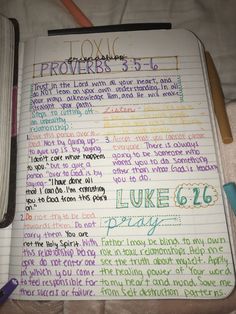 TOXIC
PROVERBS 3:5-6
Trust in the Lord with all your heart, and
do NOT lean on your own understanding. In all
your ways acknowledge Him, and He will make
straight your paths.
Steps to cutting off
an unhealthy
relationship:
Listen
1. Give this person over to
God. Not by giving up-
to give up is by saying
"I don't care what happens
to you." but to give a
person over to God is by
saying "I have done all
that I can do. I'm entrusting
you to God from this point
on."
3. Accept that you cannot please
everyone. There is always
going to be someone who
wants you to do something
other than what God is leading
you to do.
LUKE 6:26
2. Do not try to be God
towards them. Do not
carry them. You are
not the Holy Spirit. With
this relationship being
do not enter one
in which you come
to feel responsible for
their success or failure.
pray
Father I may be blind to my own
role in toxic relationships. Help me
see the truth about myself. Apply
the healing power of Your word
to my heart and mind. Save me
from self destruction patterns.